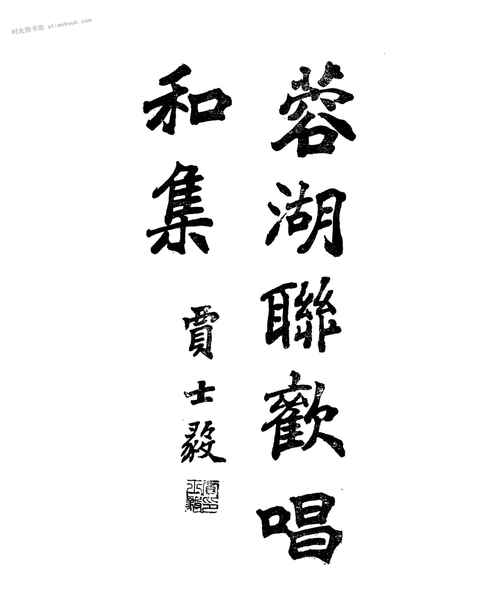 蓉湖聯歡唱
和集
賈士毅